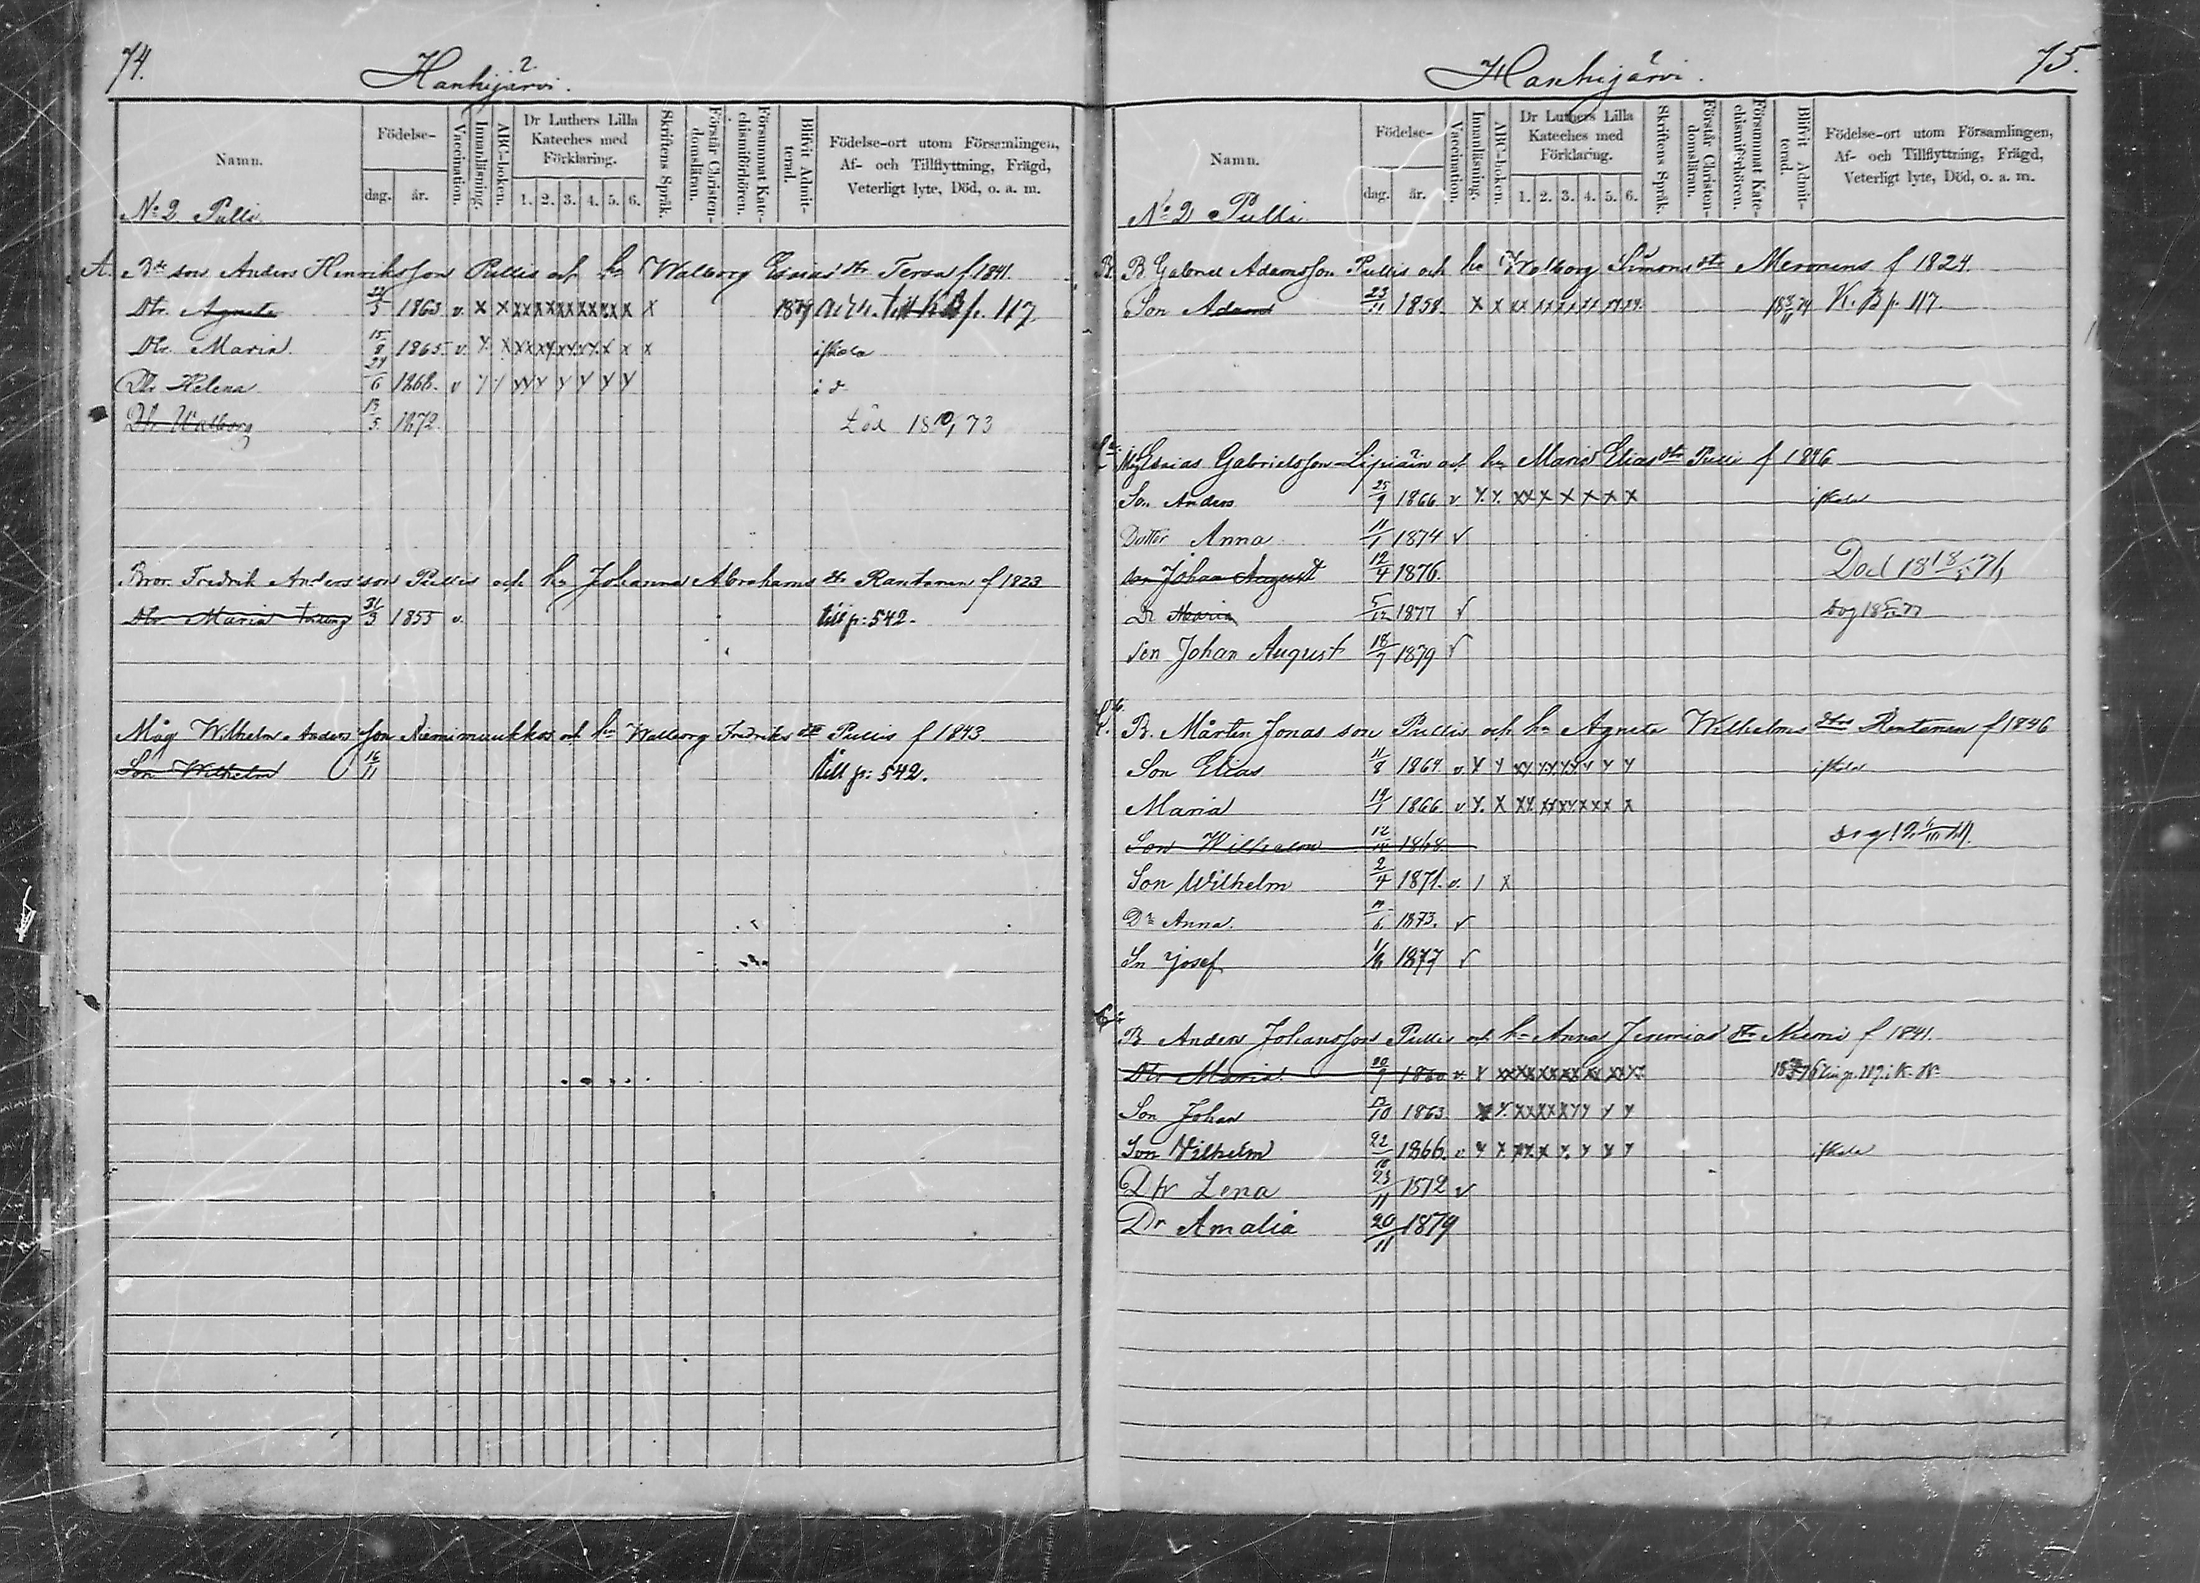 74.
Hanhijärvi.
Namn.
Födelse-
dag.
år.
Vaccination.
Innanläsning.
ABC-boken.
Dr Luthers Lilla Kateches med Förklaring.
1. 2. 3. 4. 5. 6.
Skriftens Språk.
Förstår Christendomsläran.
Försummat Katechismiförhören.
Blifvit Admitterad.
Födelse-ort utom Församlingen, Af- och Tillflyttning, Frägd, Veterligt lyte, Död, o. a. m.
No 2 Pulli
A. Anders Henriksson Pullis och h Walborg Esaias dtr f 1841.
Dtr. Agneta 5 1863 v. x x xx xx xx xx xx x x 1879 till KB p. 117
Dtr. Maria 15/8 1865 v. x x x x iskola
Dtr Helena 6 1868. v
Dtr Walborg 13/5 1872 död 18 10/1 73
Bror Fredrik Andersson Pullis och h Johanna Abrahams dtr Rantanen f 1823
Dtr Maria 31/3 1855 v. till p: 542.
Måg Wilhelm Andersson Niemimuukko och h Walborg Fredriks dtr Pullis f 1843
Son Wilhelm 16/11 till p: 542.
75.
Hanhijärvi.
Namn.
Födelse-
dag.
år.
Vaccination.
Innanläsning.
ABC-boken.
Dr Luthers Lilla Kateches med Förklaring.
1. 2. 3. 4. 5. 6.
Skriftens Språk.
Förstår Christendomsläran.
Försummat Katechismiförhören.
Blifvit Admitterad.
Födelse-ort utom Församlingen, Af- och Tillflyttning, Frägd, Veterligt lyte, Död, o. a. m.
No 2 Pulli
B. B. Gabriel Adamsson Pullis och h Walborg Simons dtr Meronens f 1824
Son Adam 23/11 1858. x x K. B p. 117.
Måg Esaias Gabrielsson Lipiäin och h Maria Elias dtr Pulli f 1846
Son Anders 25/9 1866 v. x x xx x x x x x iskola
Dotter Anna 11/1 1874 v
son Johan August 12/4 1876. Död 18 18/5 76
Dr Maria 5/12 1877 v Dog
Son Johan August 18/7 1879 v
B. Mårten Jonasson Pullis och h Agneta Wilhelms dtr Rantanen f 1846
Son Elias 11/8 1864 v. iskola
Maria 19/1 1866 v x x
Son Wilhelm 1868 Dog
Son Wilhelm 2/4 1871. v. / x
Dr Anna 1873. v
Sn Josef 1877 v
B Anders Johansson Pullis och h Anna Jeremias dtr Niemi f 1841.
Dtr Maria 1860 v. p. 117 i K.
Son Johan 10 1863
Son Vilhelm 22/10 1866 v iskola
Dtr Lena 23/11 1872 v
Dr Amalia 20/11 1879